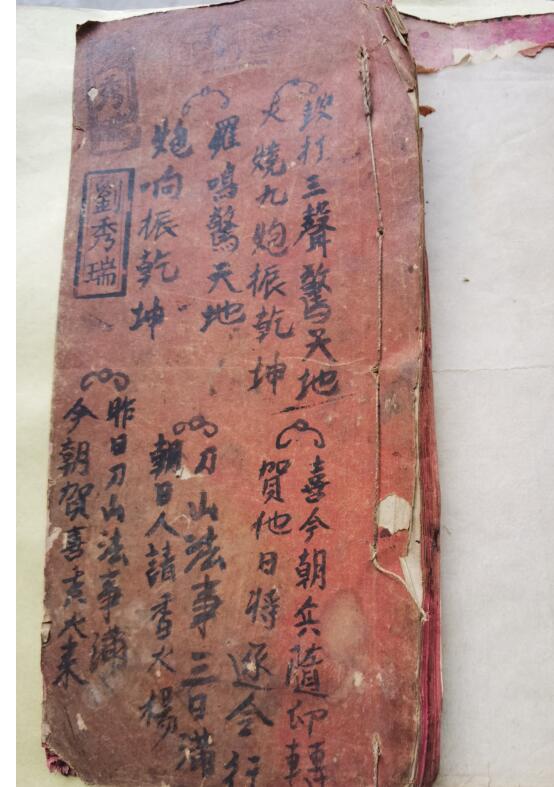 鼓打三聲驚天地
火燒九炮振乾坤
羅鳴驚天地
炮响振乾坤
劉秀瑞
秀
喜今朝兵隨印轉
賀他日將逐令行
刀山法事三日滿
朝日人請香火楊
昨日刀山法事滿
今朝賀喜貴人来